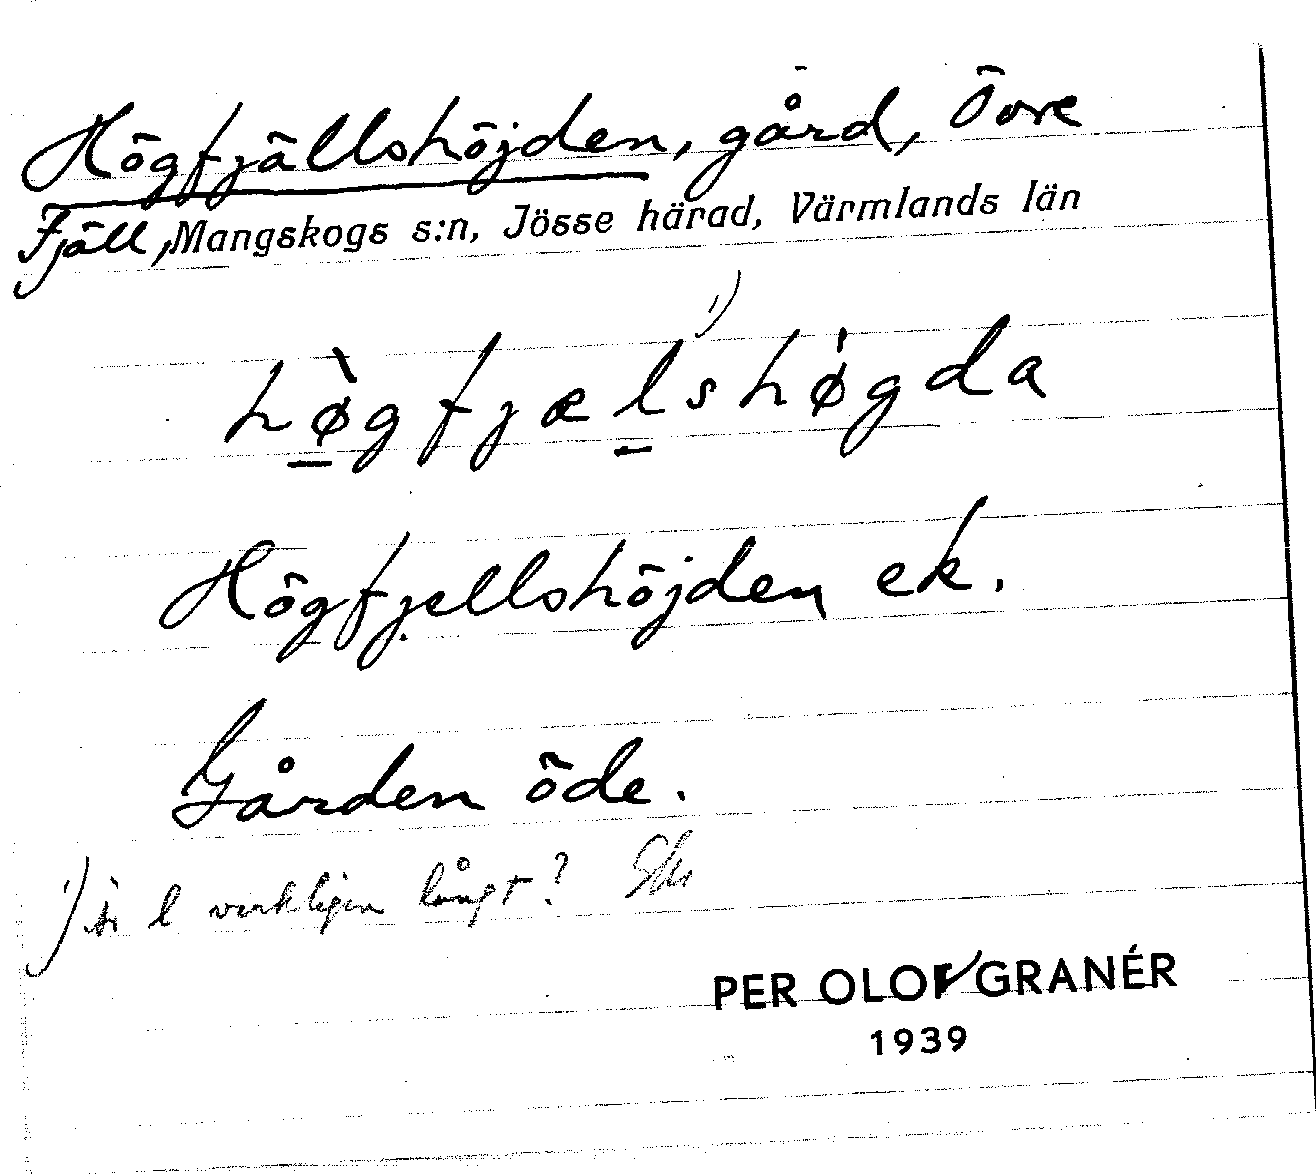 Högfjällshöjden, gård, Övre
Fjäll, Mangskogs s:n, Jösse härad, Värmlands län
1)
hø̀gfjælshø̍gda
Högfjellshöjden ek.
Gården öde.
1) Är l verkligen långt?
PER OLOV GRANÉR
1939